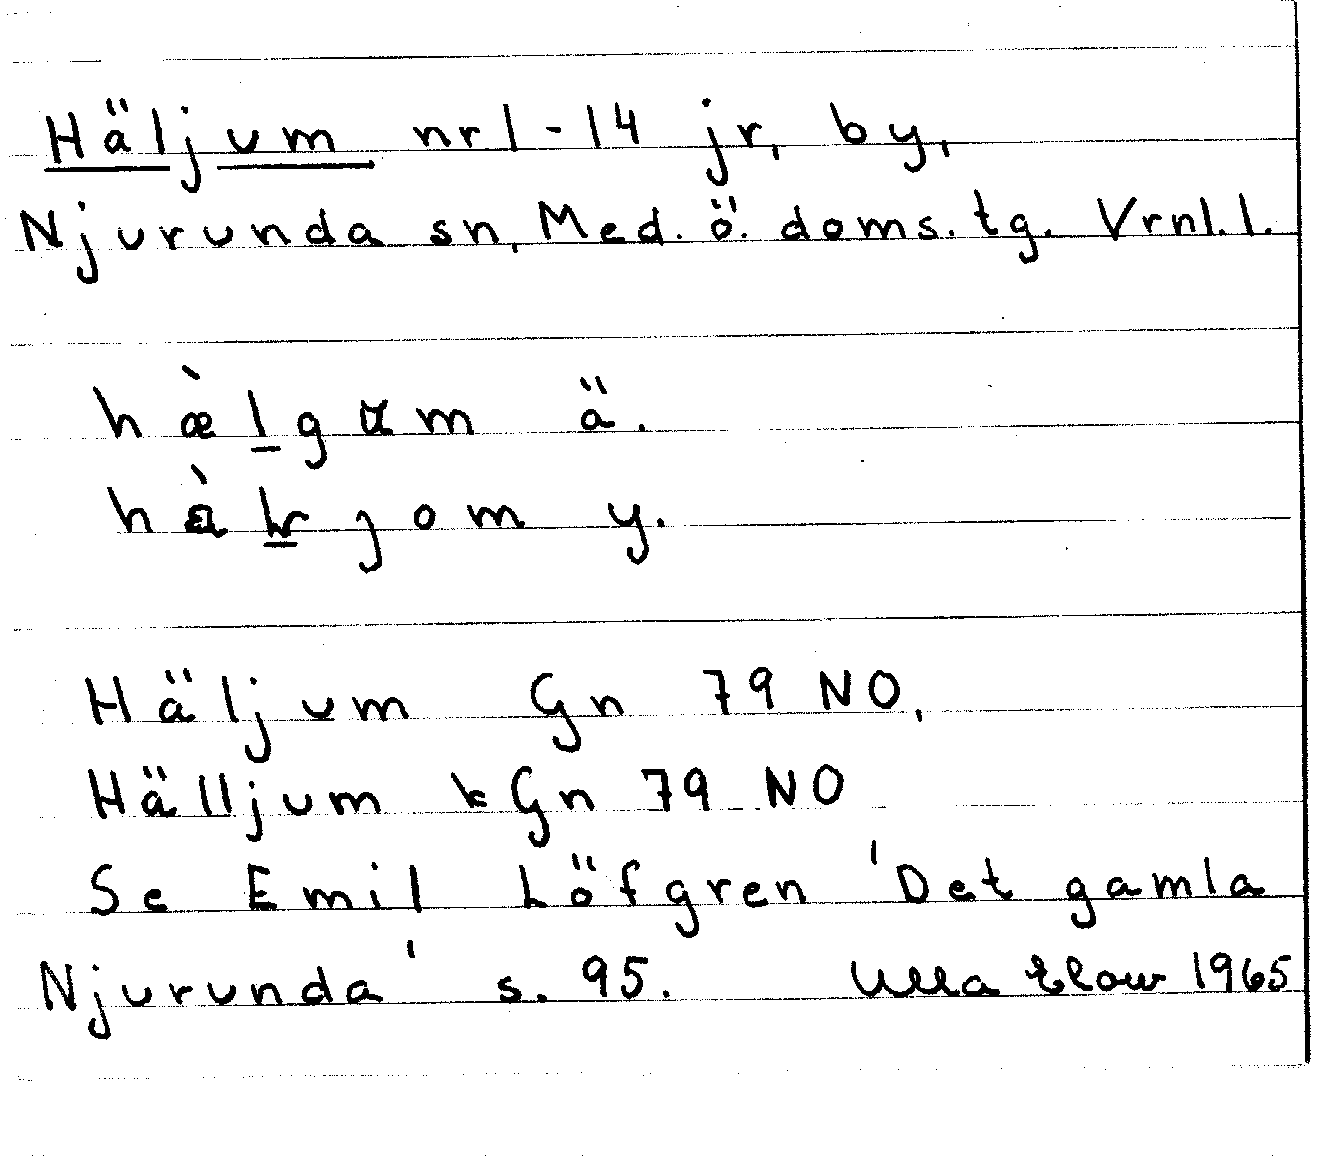 Häljum nr 1-14 jr, by,
Njurunda sn, Med. ö. doms. tg. Vrnl. l.
ä.
y.
Häljum Gn 79 NO,
Hälljum kGn 79 NO
Se Emil Löfgren 'Det gamla
Njurunda' s. 95. Ulla Elow 1965